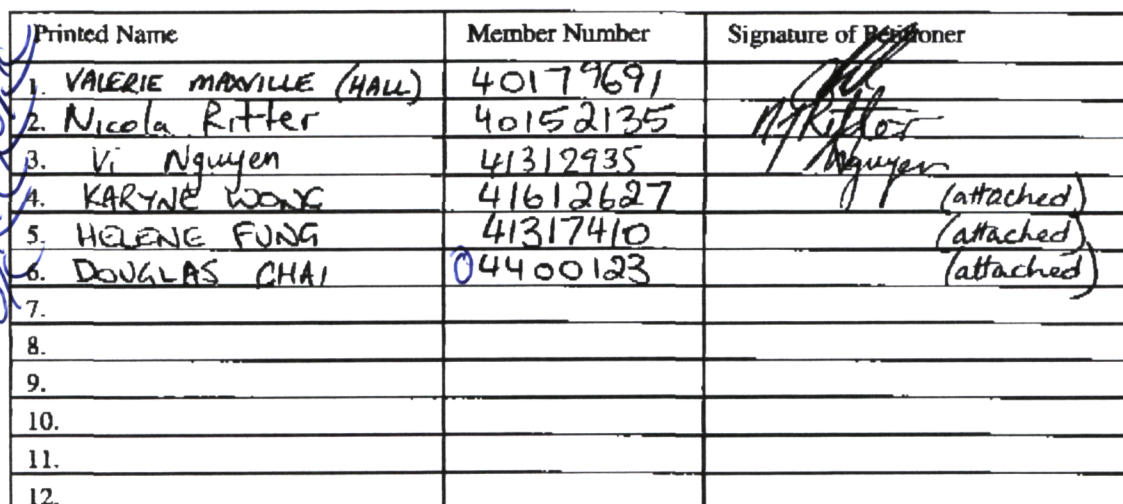 Printed Name Member Number Signature of Petitioner
1. VALERIE MAXVILLE (HALL) 40179691
2. Nicola Ritter 40152135 N Ritter
3. Vi Nguyen 41312935 Nguyen
4. KARYNE WONG 41612627 (attached)
5. HELENE FUNG 41317410 (attached)
6. DOUGLAS CHAI 04400123 (attached)
7.
8.
9.
10.
11.
12.